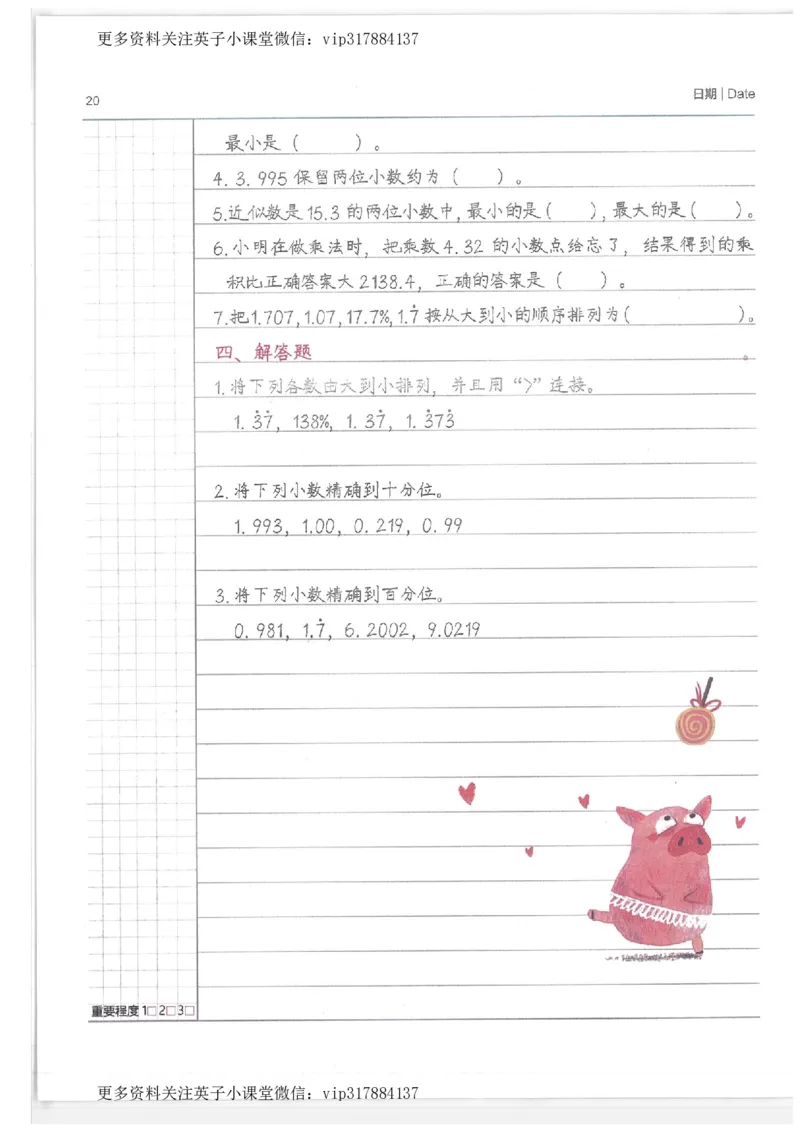 更多资料关注英子小课堂微信：vip317884137
20
日期 | Date
最小是（  ）。
4. 3. 995 保留两位小数约为（  ）。
5.近似数是15.3的两位小数中,最小的是（  ）,最大的是（  ）。
6.小明在做乘法时，把乘数4.32的小数点给忘了，结果得到的乘
积比正确答案大2138.4，正确的答案是（  ）。
7.把1.707,1.07,17.7%,1.7̇按从大到小的顺序排列为（  ）。
四、解答题
。
1.将下列各数由大到小排列，并且用“>”连接。
1. 3̇7̇，138%，1. 37̇，1. 3̇73̇
2.将下列小数精确到十分位。
1. 993，1.00，0. 219，0. 99
3.将下列小数精确到百分位。
0. 981，1.7̇，6. 2002，9.0219
重要程度 1□ 2□ 3□
更多资料关注英子小课堂微信：vip317884137